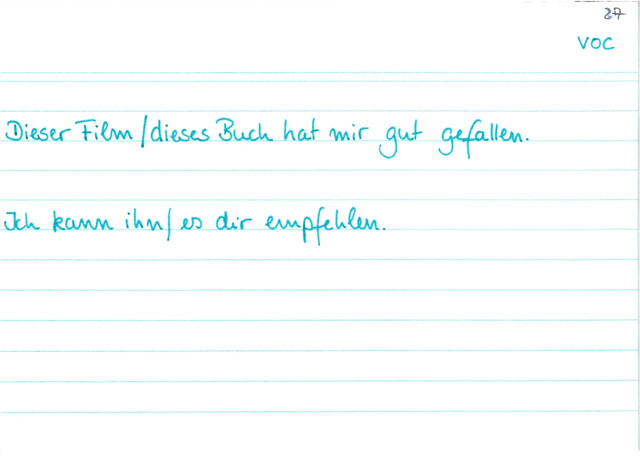 37
VOC
Dieser Film/dieses Buch hat mir gut gefallen.
Ich kann ihn/es dir empfehlen.